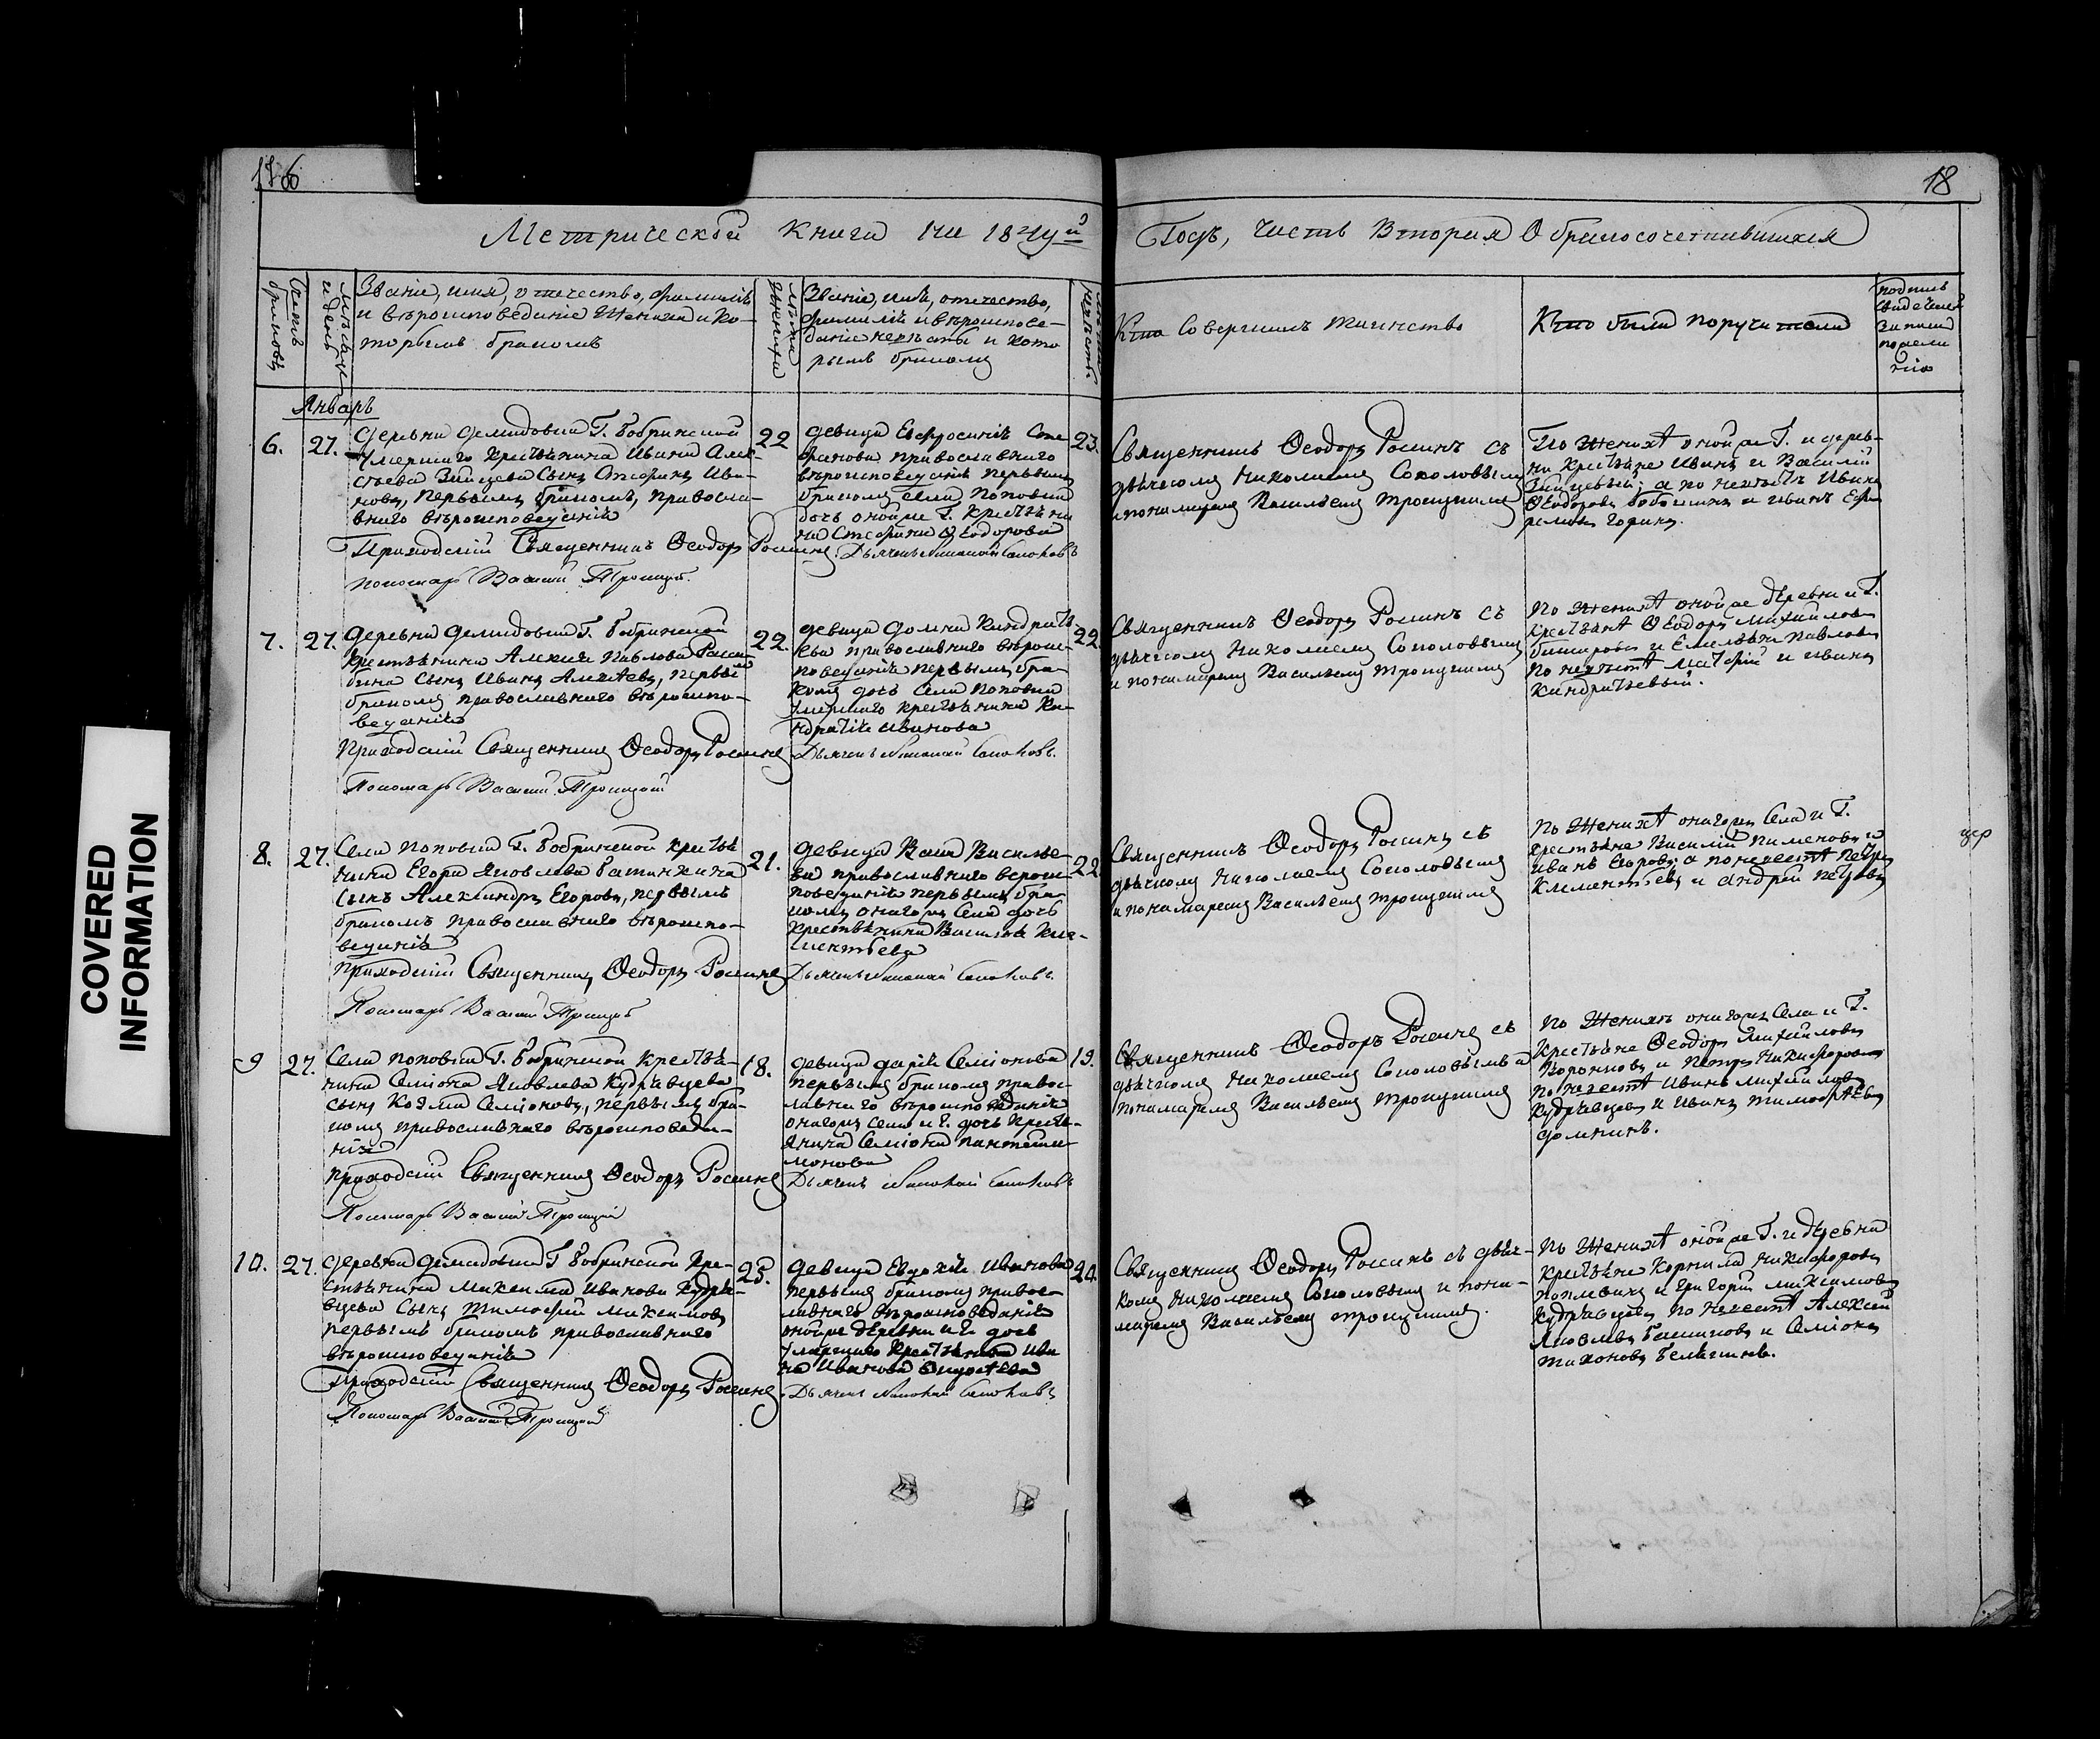 176
18
Метрической Книги на 18
Годъ, Часть Вторая О бракосочетавшихся
Счетъ браковъ
Мѣсяцъ и день
Званіе, имя, отчество, фамилія
и вѣроисповеданіе Жениха и ко-
торымъ бракомъ
Лѣта Жениха
Званіе, имя, отчество,
фамилія и вѣроиспове-
даніе невѣсты и кото
рымъ бракомъ
Кто Совершалъ таинство
Кто были поручители
подпись
свидетелей
записи
по желанію
Январь
6.
27.
Деревни Демидовки Г. Бобринской
умершаго крестьянина Ивана Алек-
сѣева Зайцева Сынъ Стефанъ Ива-
новъ, первымъ бракомъ, правосла-
внаго вѣроисповеданія
Приходскій Священникъ Ѳеодоръ Росинъ
22
девица Евфросинія Сте
фанова православнаго
вѣроисповеданія первымъ
бракомъ села Поповки
дочь оной же Г. крестьяни
на Стефана Ѳеодорова
Дьячекъ Николай Соколовъ
пономарь Василій Троицкій
23.
Священникъ Ѳеодоръ Росинъ съ
дьячкомъ Николаемъ Соколовымъ
и понамаремъ Васильемъ Троицкимъ
По Женихѣ оной же Г. и дерев-
ни крестьяне Иванъ и Василій
Зайцевы; а по невѣстѣ Иванъ
Ѳеодоровъ и Иванъ Еф-
ремовъ
7.
27.
Деревни Демидовки Г. Бобринской
крестьянина Алексея Павлова
Сынъ Иванъ Алексѣевъ, первы
бракомъ православнаго вѣроиспо-
веданія
Приходскій Священникъ Ѳеодоръ Росинъ
Пономарь Василій Троицкой
22.
девица Домна Кандратъ
ева православнаго вѣроис-
поведанія первымъ бра-
комъ дочь Села Поповки
умершаго крестьянина Ка-
ндратія Иванова
Дьячекъ Николай Соколовъ.
22.
Священникъ Ѳеодоръ Росинъ съ
дьячкомъ Николаемъ Соколовымъ
и понамаремъ Васильемъ Троицкимъ
По Женихѣ оной же дѣревни и Г.
крестьяне Ѳеодоръ Михайловъ
и Емельянъ Павловъ
По невѣстѣ Матфей и Иванъ
Кандратьевы.
8.
27.
Села Поповки Г. Бобринской кресть
нина Егора Яковлева
Сынъ Александръ Егоровъ, первымъ
бракомъ православнаго вѣроиспо-
веданія
Приходскій Священникъ Ѳеодоръ Росинъ
Пономарь Василій Троицкій
21.
девица Васа Василье-
ва православнаго верои
поведанія первымъ бра-
комъ онагожъ Села дочь
крестьянина Василья Кле-
ментьева
Дьячекъ Николай Соколовъ.
22
Священникъ Ѳеодоръ Росинъ съ
дьячкомъ Николаемъ Соколовымъ
и понамаремъ Васильемъ Троицкимъ
По Женихѣ онагожъ Села и Г.
крестьяне Василій Пименовъ и
Иванъ Егоровъ; а по невестѣ Петръ
Клементьевъ и Андрей Петровъ
9
27.
Села Поповки Г. Бобринской крестья-
нина Семіона Яковлева Кудрявцева
сынъ Козма Семіоновъ, первымъ бра-
комъ православнаго вѣроисповеда-
нія
Приходскій Священникъ Ѳеодоръ Росинъ
Пономарь Василій Троицкій
18.
девица Дарія Семіонова
первымъ бракомъ правос-
лавнаго вѣроисповеданія
онагожъ села и Г. дочь кресть-
янина Семіона Пантелеи-
монова
Дьячекъ Николай Соколовъ
19.
Священникъ Ѳеодоръ Росинъ съ
дьячкомъ Николаемъ Соколовымъ и
понамаремъ Васильемъ Троицкимъ
По Женихѣ онагожъ Села и Г.
Крестьяне Ѳеодоръ Михайловъ
Воронковъ и Петръ Никифоровъ
по невестѣ Иванъ Михайловъ
Кудрявцевъ и Иванъ Тимофѣевъ
Домнинъ.
10.
27.
Деревни Демидовки Г Бобринской кре-
стьянина Максима Иванова Кудря-
вцева Сынъ Тимофей Максимовъ
первымъ бракомъ православнаго
вѣроисповеданія
Приходскій Священникъ Ѳеодоръ Росинъ
Пономарь Василій Троицкой
25.
девица Евдокія Иванова
первымъ бракомъ правос-
лавнаго вѣроисповеданія
онойже дѣревни и Г. дочь
умершаго крестьянина Ива
на Иванова
Дьячекъ Николай Соколовъ
20.
Священникъ Ѳеодоръ Росинъ съ дьяч-
комъ Николаемъ Соколовымъ и пона-
маремъ Васильемъ Троицкимъ.
По Женихѣ оной же Г. и дѣревни
крестьяне Корнила Никифоровъ
и Григорій Максимовъ
Кудрявцевъ по невестѣ Алексей
Яковлевъ и Семіонъ
Тихоновъ
COVERED
INFORMATION